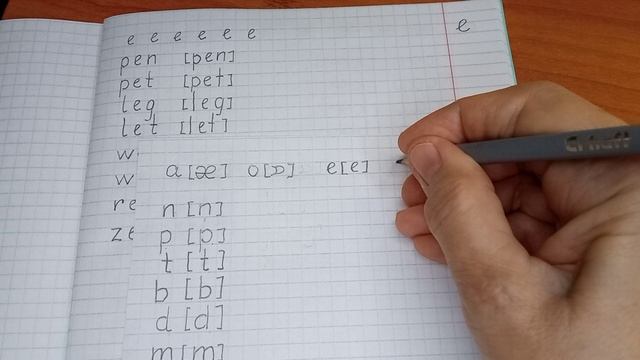 e e e e e e
e
pen [pen]
pet [pet]
leg [leg]
let [let]
w
w
re
ze
a [æ] o [ɒ] e [e]
n [n]
p [p]
t [t]
b [b]
d [d]
m [m]